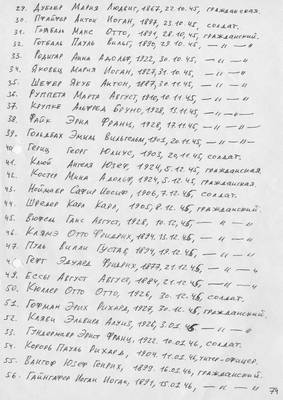 29. Дублер Мария Людвиг, 1867, 22.10.45, гражданская.
30. Пфайфер Антон Иоган, 1897, 23.10.45, солдат.
31. Гомбель Макс Отто, 1891, 28.10.45, гражданский.
32. Готваль Пауль Вильг, 1890, 29.10.45, — „ — „ —
33. Родигар Анна Адольф, 1922, 30.10.45, — „ — „
34. Яновец Мария Иоган, 1927, 31.10.45, — „ — „ —
35. Шефер Якуб Антон, 1887, 30.11.45, — „ — „ —
36. Руппета Марта Август, 1910, 10.11.45, — „ — „ —
37. Крупке Альфред Бруно, 1928, 15.11.45, — „ — „ —
38. Файк Эрна Франц, 1928, 17.11.45 — „ — „ —
39. Гольдбах Эмиль Вильгельм, 1901, 20.11.45, — „ — „ —
40. Геенц Георг Юлиус, 1903, 20.11.45, солдат.
41. Клюб Ангела Юзеф, 1924, 5.12.45, гражданская
42. Костер Мина Адольф, 1924, 5.12.45, гражданская.
43. Нойманер Сафир Иосиф, 1906, 7.12.45, солдат.
44. Шредер Карл Карл, 1905, 8.12.45, гражданский.
45. Вюфель Ганс Август, 1928, 10.12.45, — „ — „ —
46. Клямз Отто Фридрих, 1894, 15.12.45, — „ — „ —
47. Пуль Вилли Густав, 1894, 19.12.45, — „ — „ —
4. Гефт Эдуард Фридрих, 1877, 21.12.45 — „ — „
49. Ессы Август Август, 1884, 21.12.45, — „ — „
50. Кюллер Отто Отто, 1926, 30.12.45, солдат.
51. Гофман Эрих Рихард, 1927, 30.12.45, гражданский.
52. Клави Эльвира Алоиз, 1928, 3.01.46 — „ — „
53. Гундерманер Эрнст Франц, 1922, 10.01.46, солдат.
54. Король Пауль Рихард, 1904, 11.01.46, унтер-офицер.
55. Вангоф Юзеф Генрих, 1899, 16.01.46, гражданский.
56. Гайнгафер Иоган Иоган, 1891, 15.01.46, — „ — „
74